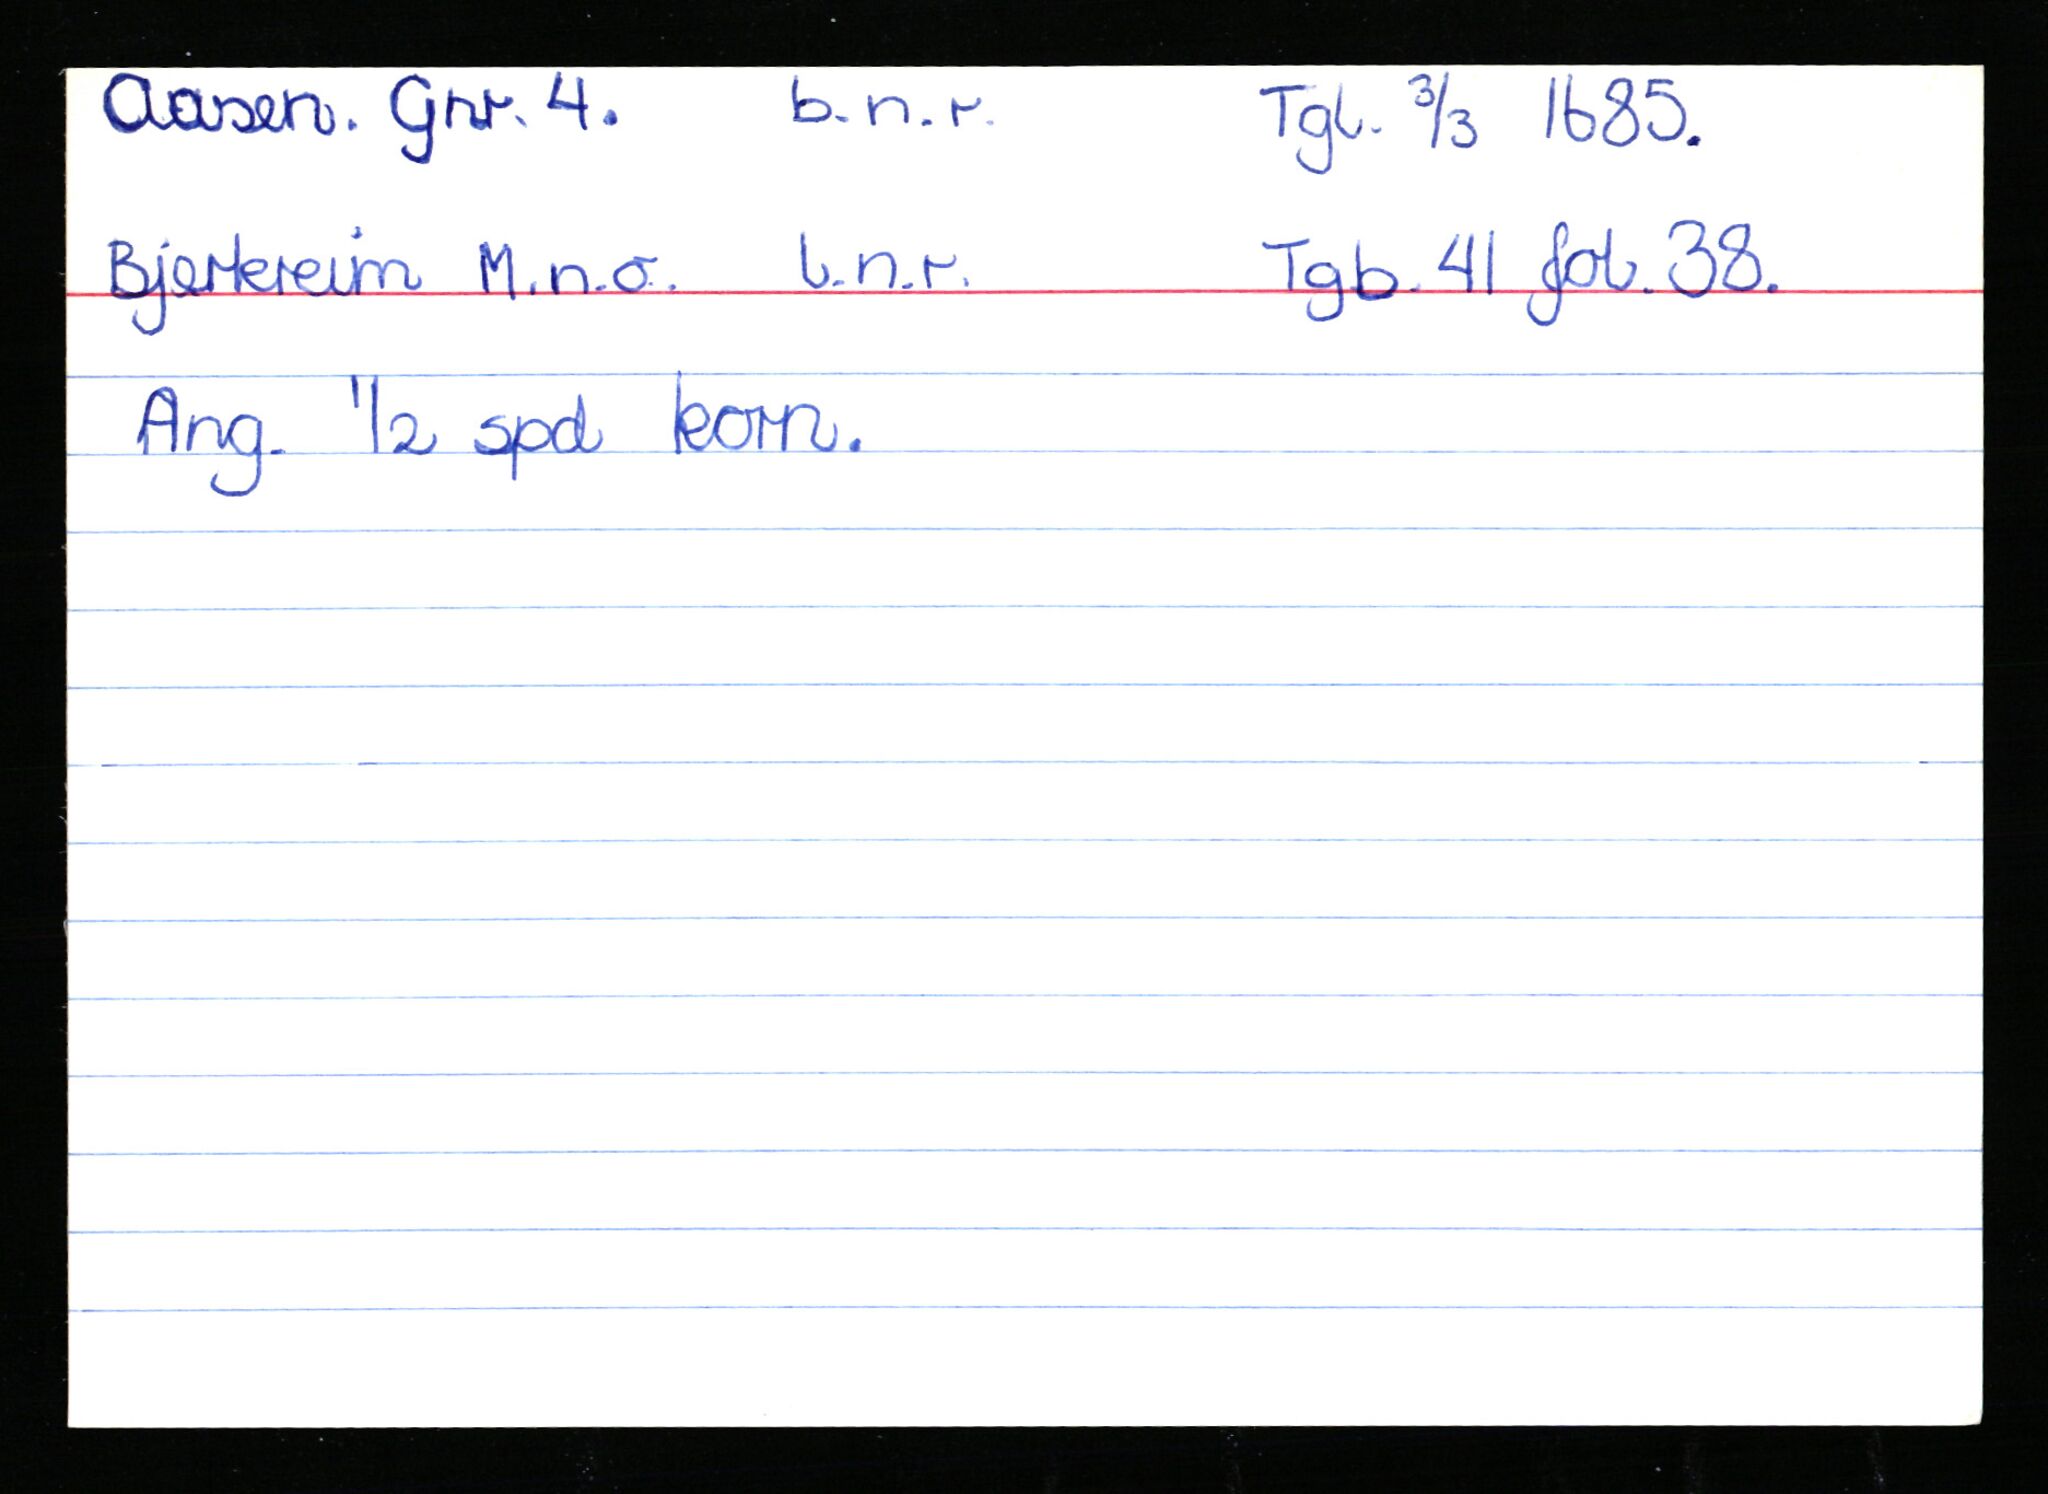 Aasen. Gnr. 4. b.n.r. Tgl. 3/3 1685.
Bjerkreim M.n.o. l.n.r. Tgb. 41 fol. 38.
Ang. 1/2 spd korn.